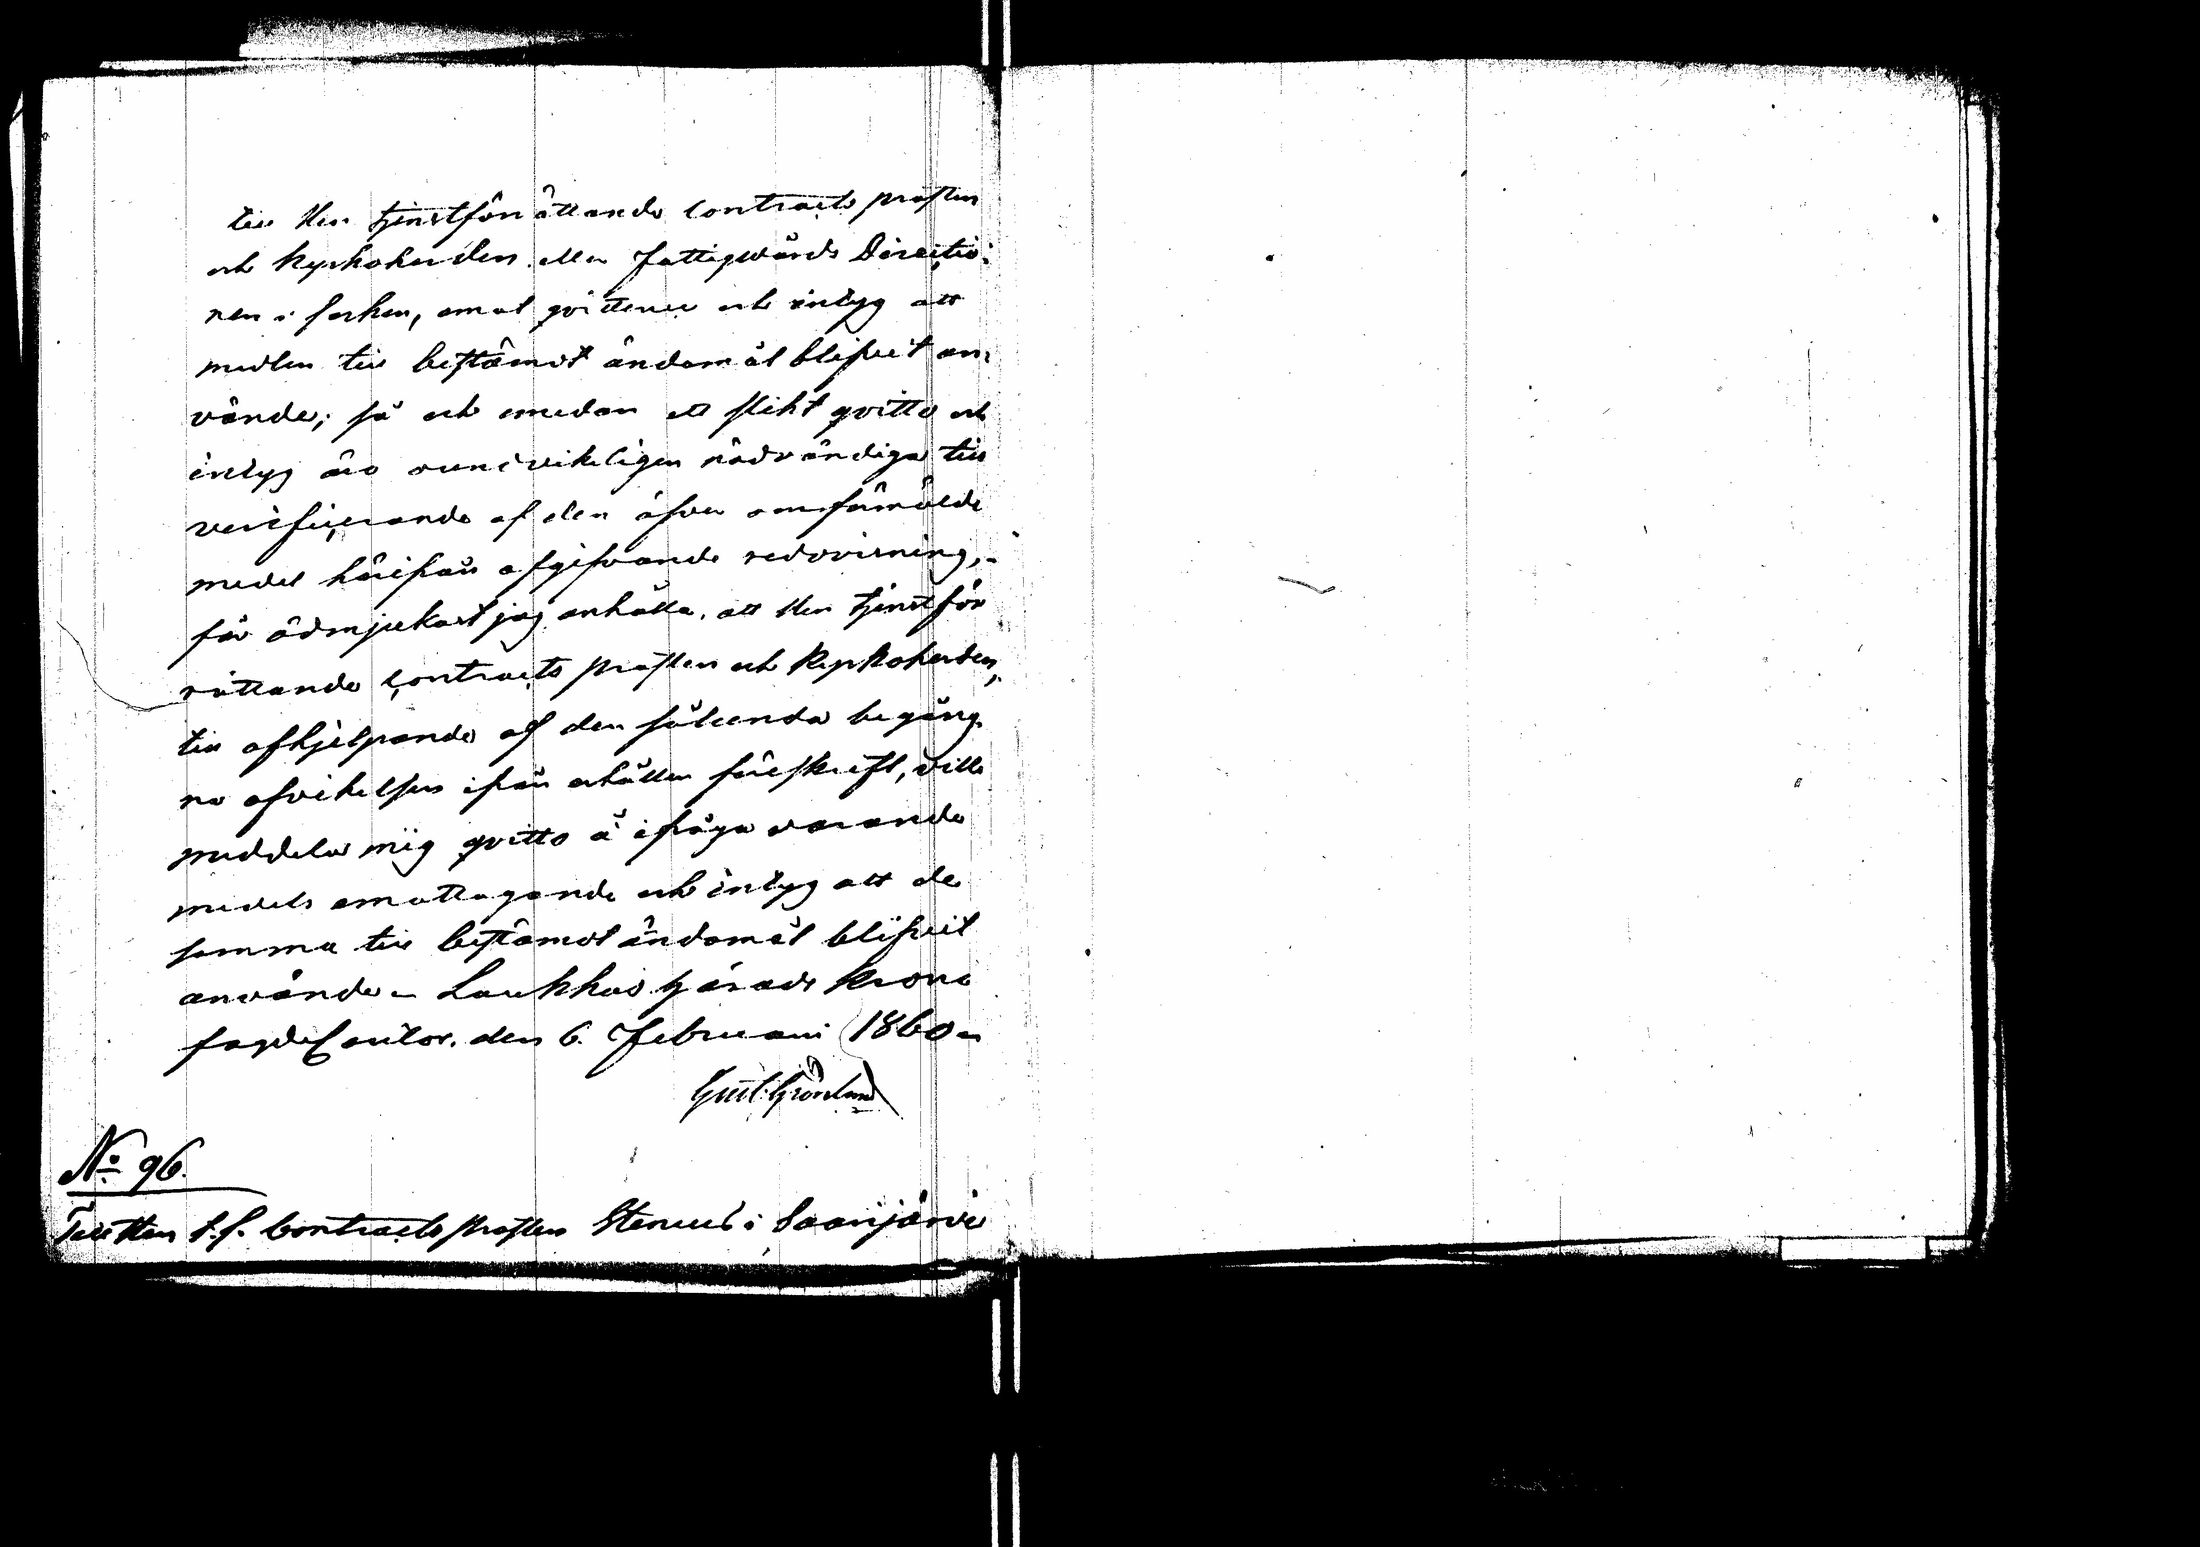 till Herr tjenstförrättande Contracts prosten
och Kyrkoherden eller Fattigvårds Directio-
nen i socken, emot qvittence och intyg att
medlen till bestämdt ändamål blifvit an-
vände; så och emedan ett slikt qvitto och
intyg äro oundvikeligen nödvändiga till
verificerande af den öfver omförmälde
medel härifrån afgifvande redovisning,
får ödmjukast jag anhålla, att Herr tjenstför
rättande Contracts prosten och Kyrkoherden,
till afhjelpande af den sålunda begång-
na afvikelsen ifrån erhållen föreskrift, ville
meddela mig qvitto å ifråga varande
medels emottagande och intyg att de
samma till bestämdt ändamål blifvit
använde. Laukkas härads Krono
fogde Contor, den 6. Februari 1860.
Gust. Grönlund
No 96.
Till Herr t.f. Contracts prosten Stenius i Saarijärvi